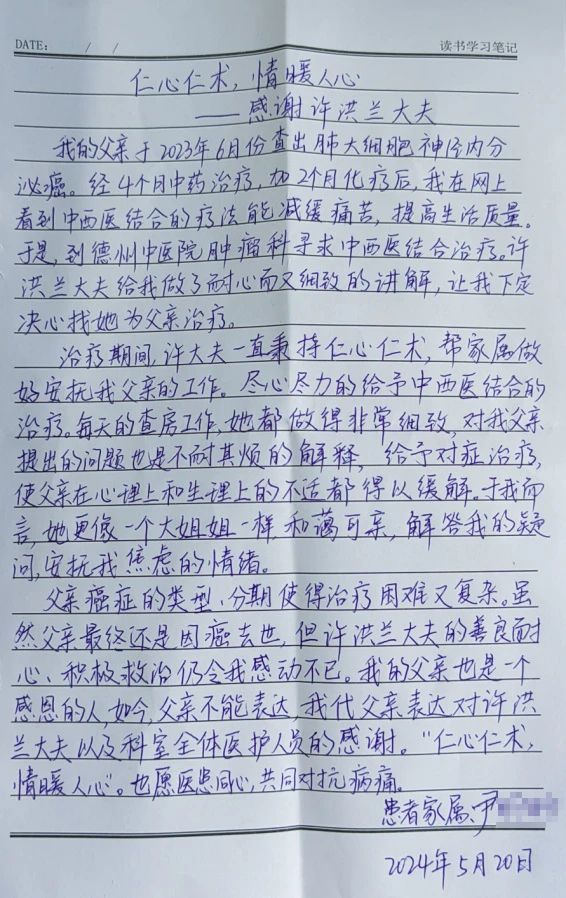 DATE: / / 读书学习笔记
仁心仁术，情暖人心
——感谢许洪兰大夫
我的父亲于2023年6月份查出肺大细胞神经内分
泌癌。经4个月中药治疗，加2个月化疗后，我在网上
看到中西医结合的疗法能减缓痛苦，提高生活质量。
于是，到德州中医院肿瘤科寻求中西医结合治疗。许
洪兰大夫给我做了耐心而又细致的讲解，让我下定
决心找她为父亲治疗。
治疗期间，许大夫一直秉持仁心仁术，帮家属做
好安抚我父亲的工作。尽心尽力的给予中西医结合的
治疗。每天的查房工作，她都做得非常细致，对我父亲
提出的问题也是不耐其烦的解释，给予对症治疗，
使父亲在心理上和生理上的不适都得以缓解。于我而
言，她更像一个大姐姐一样，和蔼可亲，解答我的疑
问，安抚我焦虑的情绪。
父亲癌症的类型、分期使得治疗困难又复杂。虽
然父亲最终还是因癌去世，但许洪兰大夫的善良而耐
心、积极救治仍令我感动不已。我的父亲也是一个
感恩的人，如今，父亲不能表达，我代父亲表达对许洪
兰大夫以及科室全体医护人员的感谢。“仁心仁术，
情暖人心”。也愿医患同心，共同对抗病痛。
患者家属：尹
2024年5月20日